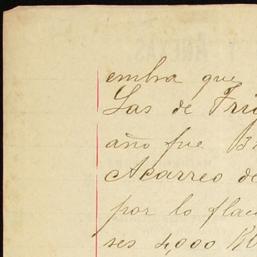 embra que
Las de Fri
año fue
Acarreo de
por lo flac
ses 4,000